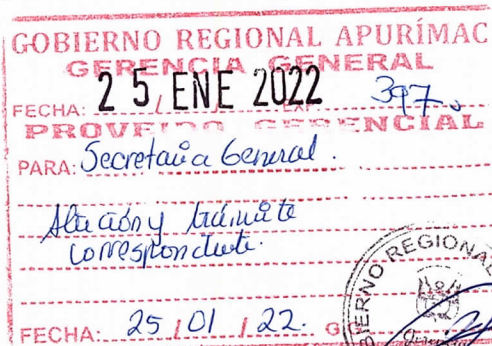 GOBIERNO REGIONAL APURÍMAC
GERENCIA GENERAL
FECHA: 25 ENE 2022 397
PROVEIDO GERENCIAL
PARA: Secretaría General.
Atención y trámite
correspondiente.
FECHA: 25 / 01 / 22.
REGIONAL